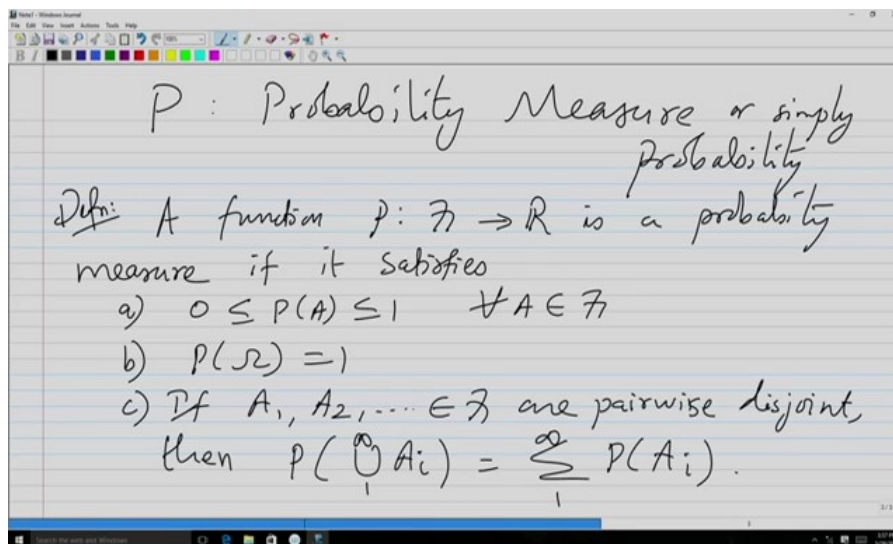 Note1 - Windows Journal
File Edit View Insert Actions Tools Help
P : Probability Measure or simply
probability
Defn: A function P : ℱ → ℝ is a probability
measure if it satisfies
a) 0 ≤ P(A) ≤ 1 ∀ A ∈ ℱ
b) P(Ω) = 1
c) If A₁, A₂, .... ∈ ℱ are pairwise disjoint,
then P(∪₁^∞ Aᵢ) = Σ₁^∞ P(Aᵢ).
Search the web and Windows